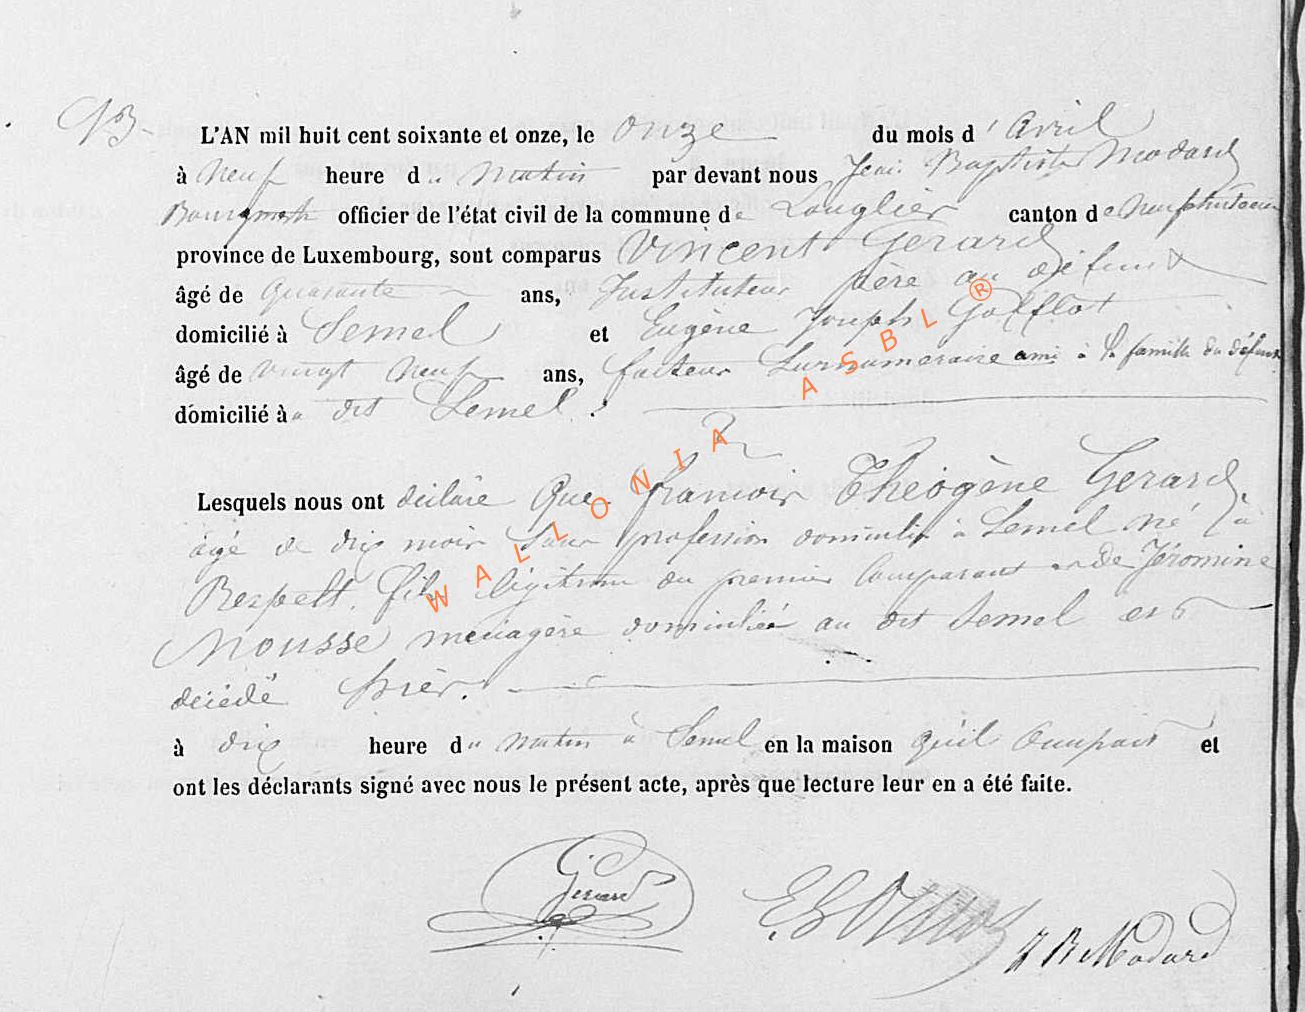 N 3-
L'AN mil huit cent soixante et onze, le onze du mois d'avril
à neuf heure du matin par devant nous Jean Baptiste Modard
Bourgmestre officier de l'état civil de la commune de Longlier canton de Neufchateau
province de Luxembourg, sont comparus Vincent Gerard
âgé de quarante ans, Instituteur père au défunt
domicilié à Semel et Eugène Joseph Gofflot
âgé de vingt neuf ans, facteur Surnuméraire ami à la famille du défunt
domicilié à au dit Semel.
Lesquels nous ont déclaré Que francois Théogène Gerard,
âgé de dix mois Sans profession domicilié à Semel né à
Respelt, fils légitime du premier Comparant et de Jéromine
Mousse ménagère domiciliée au dit Semel est
décédé hier.
à dix heure du matin à Semel en la maison qu'il Occupait et
ont les déclarants signé avec nous le présent acte, après que lecture leur en a été faite.
Gerard
J B Modard
WALLONIA ASBL ®